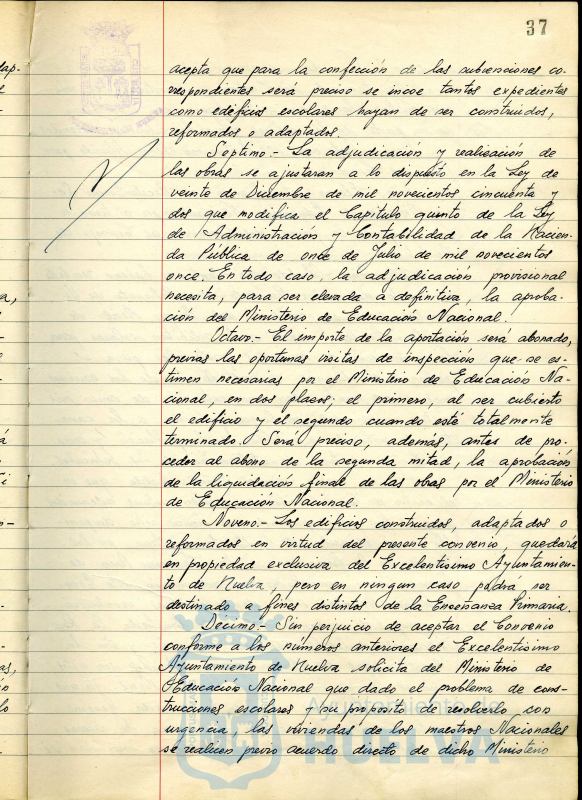 37
acepta que para la confección de las subvenciones co-
rrespondientes será preciso se incoe tantos expedientes
como edificios escolares hayan de ser construidos,
reformados o adaptados.
Septimo.- La adjudicación y realización de
las obras se ajustaran a lo dispuesto en la Ley de
veinte de Diciembre de mil novecientos cincuenta y
dos que modifica el Capitulo quinto de la Ley
de Administración y Contabilidad de la Hacien-
da Pública de once de Julio de mil novecientos
once. En todo caso, la adjudicación provisional
necesita, para ser elevada a definitiva, la aproba-
ción del Ministerio de Educación Nacional.
Octavo.- El importe de la aportación será abonado,
previas las oportunas visitas de inspección que se es-
timen necesarias por el Ministerio de Educación Na-
cional, en dos plazos; el primero, al ser cubierto
el edificio y el segundo cuando esté totalmente
terminado. Será preciso, además, antes de pro-
ceder al abono de la segunda mitad, la aprobación
de la liquidación final de las obras por el Ministerio
de Educación Nacional.
Noveno.- Los edificios construidos, adaptados o
reformados en virtud del presente convenio, quedará
en propiedad exclusiva del Excelentísimo Ayuntamien-
to de Huelva, pero en ningun caso podrá ser
destinado a fines distintos de la Enseñanza Primaria.
Décimo.- Sin perjuicio de aceptar el Convenio
conforme a los números anteriores el Excelentisimo
Ayuntamiento de Huelva solicita del Ministerio de
Educación Nacional que dado el problema de cons-
trucciones escolares y su proposito de resolverlo con
urgencia, las viviendas de los maestros Nacionales
se realicen previo acuerdo directo de dicho Ministerio
Ayuntamiento de
HUELVA